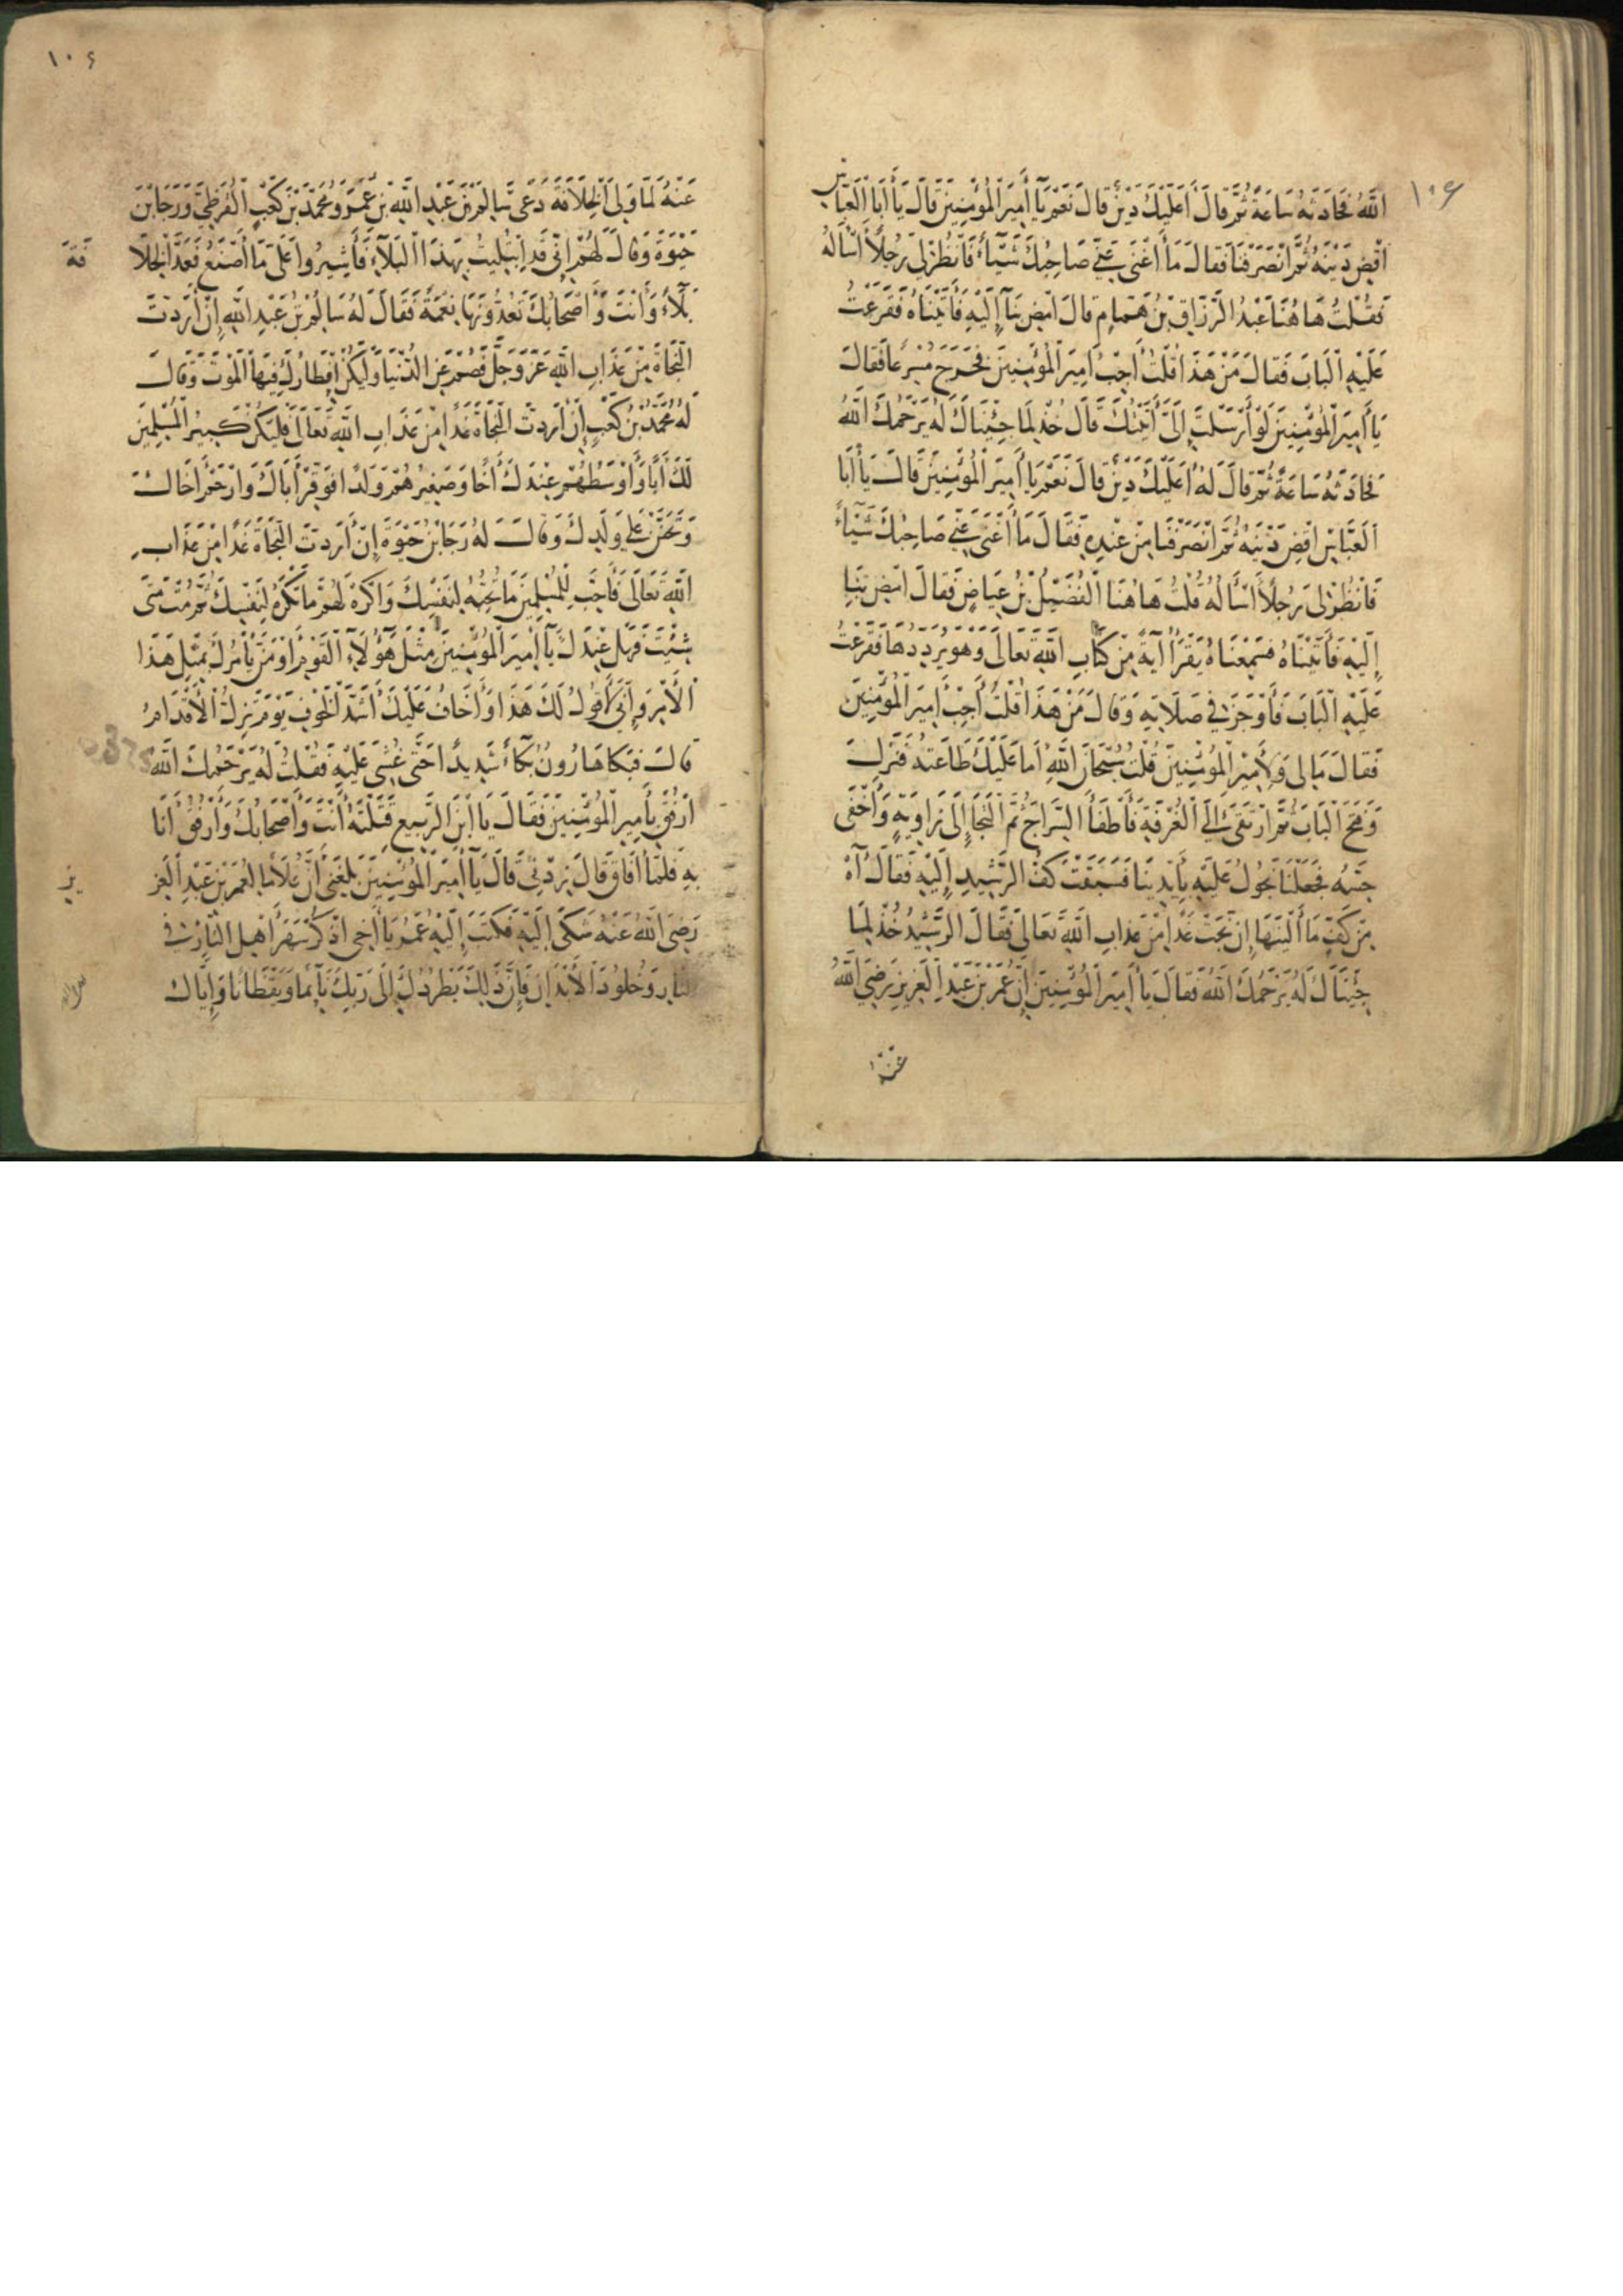 ١٠٦
اللَّهُ فَحَادَثَهُ سَاعَةً ثُمَّ قَالَ أَعَلَيْكَ دَيْنٌ قَالَ نَعَمْ يَا أَمِيرَ الْمُؤْمِنِينَ قَالَ يَا أَبَا الْعَبَّاسِ
اقْضِ دَيْنَهُ ثُمَّ انْصَرَفْنَا فَقَالَ مَا أَغْنَى عَنِّي صَاحِبُكَ شَيْئًا فَانْظُرْ لِي رَجُلًا أَسْأَلُهُ
فَقُلْتُ هَاهُنَا عَبْدُ الرَّزَّاقِ بْنُ هَمَّامٍ قَالَ امْضِ بِنَا إِلَيْهِ فَأَتَيْنَاهُ فَقَرَعْتُ
عَلَيْهِ الْبَابَ فَقَالَ مَنْ هَذَا قُلْتُ أَجِبْ أَمِيرَ الْمُؤْمِنِينَ فَخَرَجَ مُسْرِعًا فَقَالَ
يَا أَمِيرَ الْمُؤْمِنِينَ لَوْ أَرْسَلْتَ إِلَيَّ أَتَيْتُكَ قَالَ خُذْ لِمَا جِئْنَاكَ لَهُ يَرْحَمُكَ اللَّهُ
فَحَادَثَهُ سَاعَةً ثُمَّ قَالَ لَهُ أَعَلَيْكَ دَيْنٌ قَالَ نَعَمْ يَا أَمِيرَ الْمُؤْمِنِينَ قَالَ يَا أَبَا
الْعَبَّاسِ اقْضِ دَيْنَهُ ثُمَّ انْصَرَفْنَا مِنْ عِنْدِهِ فَقَالَ مَا أَغْنَى عَنِّي صَاحِبُكَ شَيْئًا
فَانْظُرْ لِي رَجُلًا أَسْأَلُهُ قُلْتُ هَاهُنَا الْفُضَيْلُ بْنُ عِيَاضٍ فَقَالَ امْضِ بِنَا
إِلَيْهِ فَأَتَيْنَاهُ فَسَمِعْنَاهُ يَقْرَأُ آيَةً مِنْ كِتَابِ اللَّهِ تَعَالَى وَهُوَ يُرَدِّدُهَا فَقَرَعْتُ
عَلَيْهِ الْبَابَ فَأَوْجَزَ فِي صَلَاتِهِ وَقَالَ مَنْ هَذَا قُلْتُ أَجِبْ أَمِيرَ الْمُؤْمِنِينَ
فَقَالَ مَا لِي وَلِأَمِيرِ الْمُؤْمِنِينَ قُلْتُ سُبْحَانَ اللَّهِ أَمَا عَلَيْكَ طَاعَتُهُ فَنَزَلَ
وَفَتَحَ الْبَابَ ثُمَّ ارْتَقَى إِلَى الْغُرْفَةِ فَأَطْفَأَ السِّرَاجَ ثُمَّ الْتَجَا إِلَى زَاوِيَةٍ وَأَخْفَى
جَنْبَهُ فَجَعَلْنَا نَجُولُ عَلَيْهِ بِأَيْدِينَا فَسَبَقَتْ كَفُّ الرَّشِيدِ إِلَيْهِ فَقَالَ آهْ
مِنْ كَفٍّ مَا أَلْيَنَهَا إِنْ نَجَتْ غَدًا مِنْ عَذَابِ اللَّهِ تَعَالَى فَقَالَ الرَّشِيدُ خُذْ لِمَا
جِئْنَاكَ لَهُ يَرْحَمُكَ اللَّهُ فَقَالَ يَا أَمِيرَ الْمُؤْمِنِينَ إِنَّ عُمَرَ بْنَ عَبْدِ الْعَزِيزِ رَضِيَ اللَّهُ
عَنْهُ
١٠٦
عَنْهُ لَمَّا وَلِيَ الْخِلَافَةَ دَعَى سَالِمَ بْنَ عَبْدِ اللَّهِ بْنِ عُمَرَ وَمُحَمَّدَ بْنَ كَعْبٍ الْقُرَظِيَّ وَرَجَا بْنَ
حَيْوَةَ وَقَالَ لَهُمْ إِنِّي قَدِ ابْتُلِيتُ بِهَذَا الْبَلَاءِ فَأَشِيرُوا عَلَى مَا أَصْنَعُ فَعَدَّ الْخِلَا
فَةَ
بَلَاءً وَأَنْتَ وَأَصْحَابُكَ تَعُدُّونَهَا نِعْمَةً فَقَالَ لَهُ سَالِمُ بْنُ عَبْدِ اللَّهِ إِنْ أَرَدْتَ
النَّجَاةَ مِنْ عَذَابِ اللَّهِ عَزَّ وَجَلَّ فَصُمْ عَنِ الدُّنْيَا وَلْيَكُنْ إِفْطَارُكَ فِيهَا الْمَوْتَ وَقَالَ
لَهُ مُحَمَّدُ بْنُ كَعْبٍ إِنْ أَرَدْتَ النَّجَاةَ غَدًا مِنْ عَذَابِ اللَّهِ تَعَالَى فَلْيَكُنْ كَبِيرُ الْمُسْلِمِينَ
لَكَ أَبًا وَأَوْسَطُهُمْ عِنْدَكَ أَخًا وَصَغِيرُهُمْ وَلَدًا فَوَقِّرْ أَبَاكَ وَارْحَمْ أَخَاكَ
وَتَحَنَّنْ عَلَى وَلَدِكَ وَقَالَ لَهُ رَجَا بْنُ حَيْوَةَ إِنْ أَرَدْتَ النَّجَاةَ غَدًا مِنْ عَذَابِ
اللَّهِ تَعَالَى فَأَحِبَّ لِلْمُسْلِمِينَ مَا تُحِبُّهُ لِنَفْسِكَ وَاكْرَهْ لَهُمْ مَا تَكْرَهُ لِنَفْسِكَ ثُمَّ مُتْ مَتَى
شِئْتَ فَهَلْ عِنْدَكَ يَا أَمِيرَ الْمُؤْمِنِينَ مِثْلَ هَؤُلَاءِ الْقَوْمِ أَوْ مَنْ يَأْمُرُكَ بِمِثْلِ هَذَا
الْأَمْرِ وَإِنِّي لَأَقُولُ لَكَ هَذَا وَأَخَافُ عَلَيْكَ أَشَدَّ الْخَوْفِ يَوْمَ تَزِلُّ الْأَقْدَامُ
قَالَ فَبَكَا هَارُونُ بُكَاءً شَدِيدًا حَتَّى غُشِيَ عَلَيْهِ فَقُلْتُ لَهُ يَرْحَمُكَ اللَّهُ
ارْفُقْ بِأَمِيرِ الْمُؤْمِنِينَ فَقَالَ يَا ابْنَ الرَّبِيعِ قَتَلْتَهُ أَنْتَ وَأَصْحَابُكَ وَأَرْفُقُ أَنَا
بِهِ فَلَمَّا أَفَاقَ قَالَ زِدْنِي قَالَ يَا أَمِيرَ الْمُؤْمِنِينَ بَلَغَنِي أَنَّ غُلَامًا لِعُمَرَ بْنِ عَبْدِ الْعَزِ
يز
رَضِيَ اللَّهُ عَنْهُ شَكَى إِلَيْهِ فَكَتَبَ إِلَيْهِ عُمَرُ يَا أَخِي اذْكُرْ سَهَرَ أَهْلِ النَّارِ فِي
النَّارِ وَخُلُودَ الْأَبَدِ فَإِنَّ ذَلِكَ يَطْرُدُكَ إِلَى رَبِّكَ نَائِمًا وَيَقْظَانًا وَإِيَّاكَ